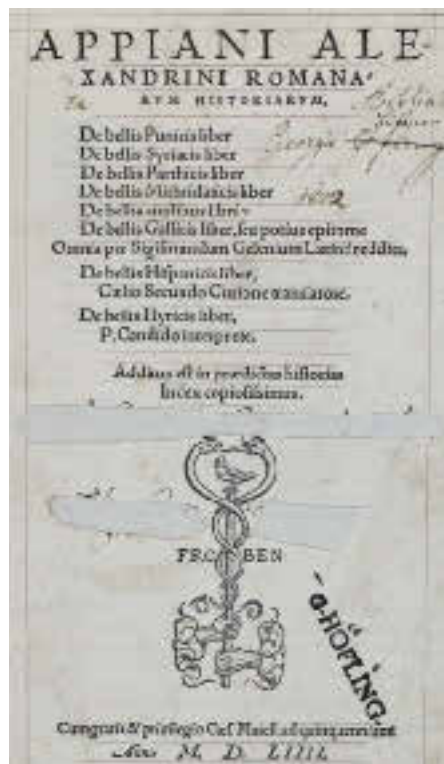 APPIANI ALE-
XANDRINI ROMANA-
RVM HISTORIARVM,
De bellis Punicis liber
De bellis Syriacis liber
De bellis Parthicis liber
De bellis Mithridaticis liber
De bellis ciuilibus libri
De bellis Gallicis liber, seu potius epitome
Omnia per Sigismundum Gelenium Latinè reddita,
De bellis Hispanicis liber,
Cælio Secundo Curione translatore.
De bellis Illyricis liber,
P. Candido interprete.
Additus est in prædictas historias
Index copiosissimus.
FRO BEN
G. HÖFLING.
Cum gratia & priuilegio Cæs. Maiest. ad quinquennium
M. D. LIIII.